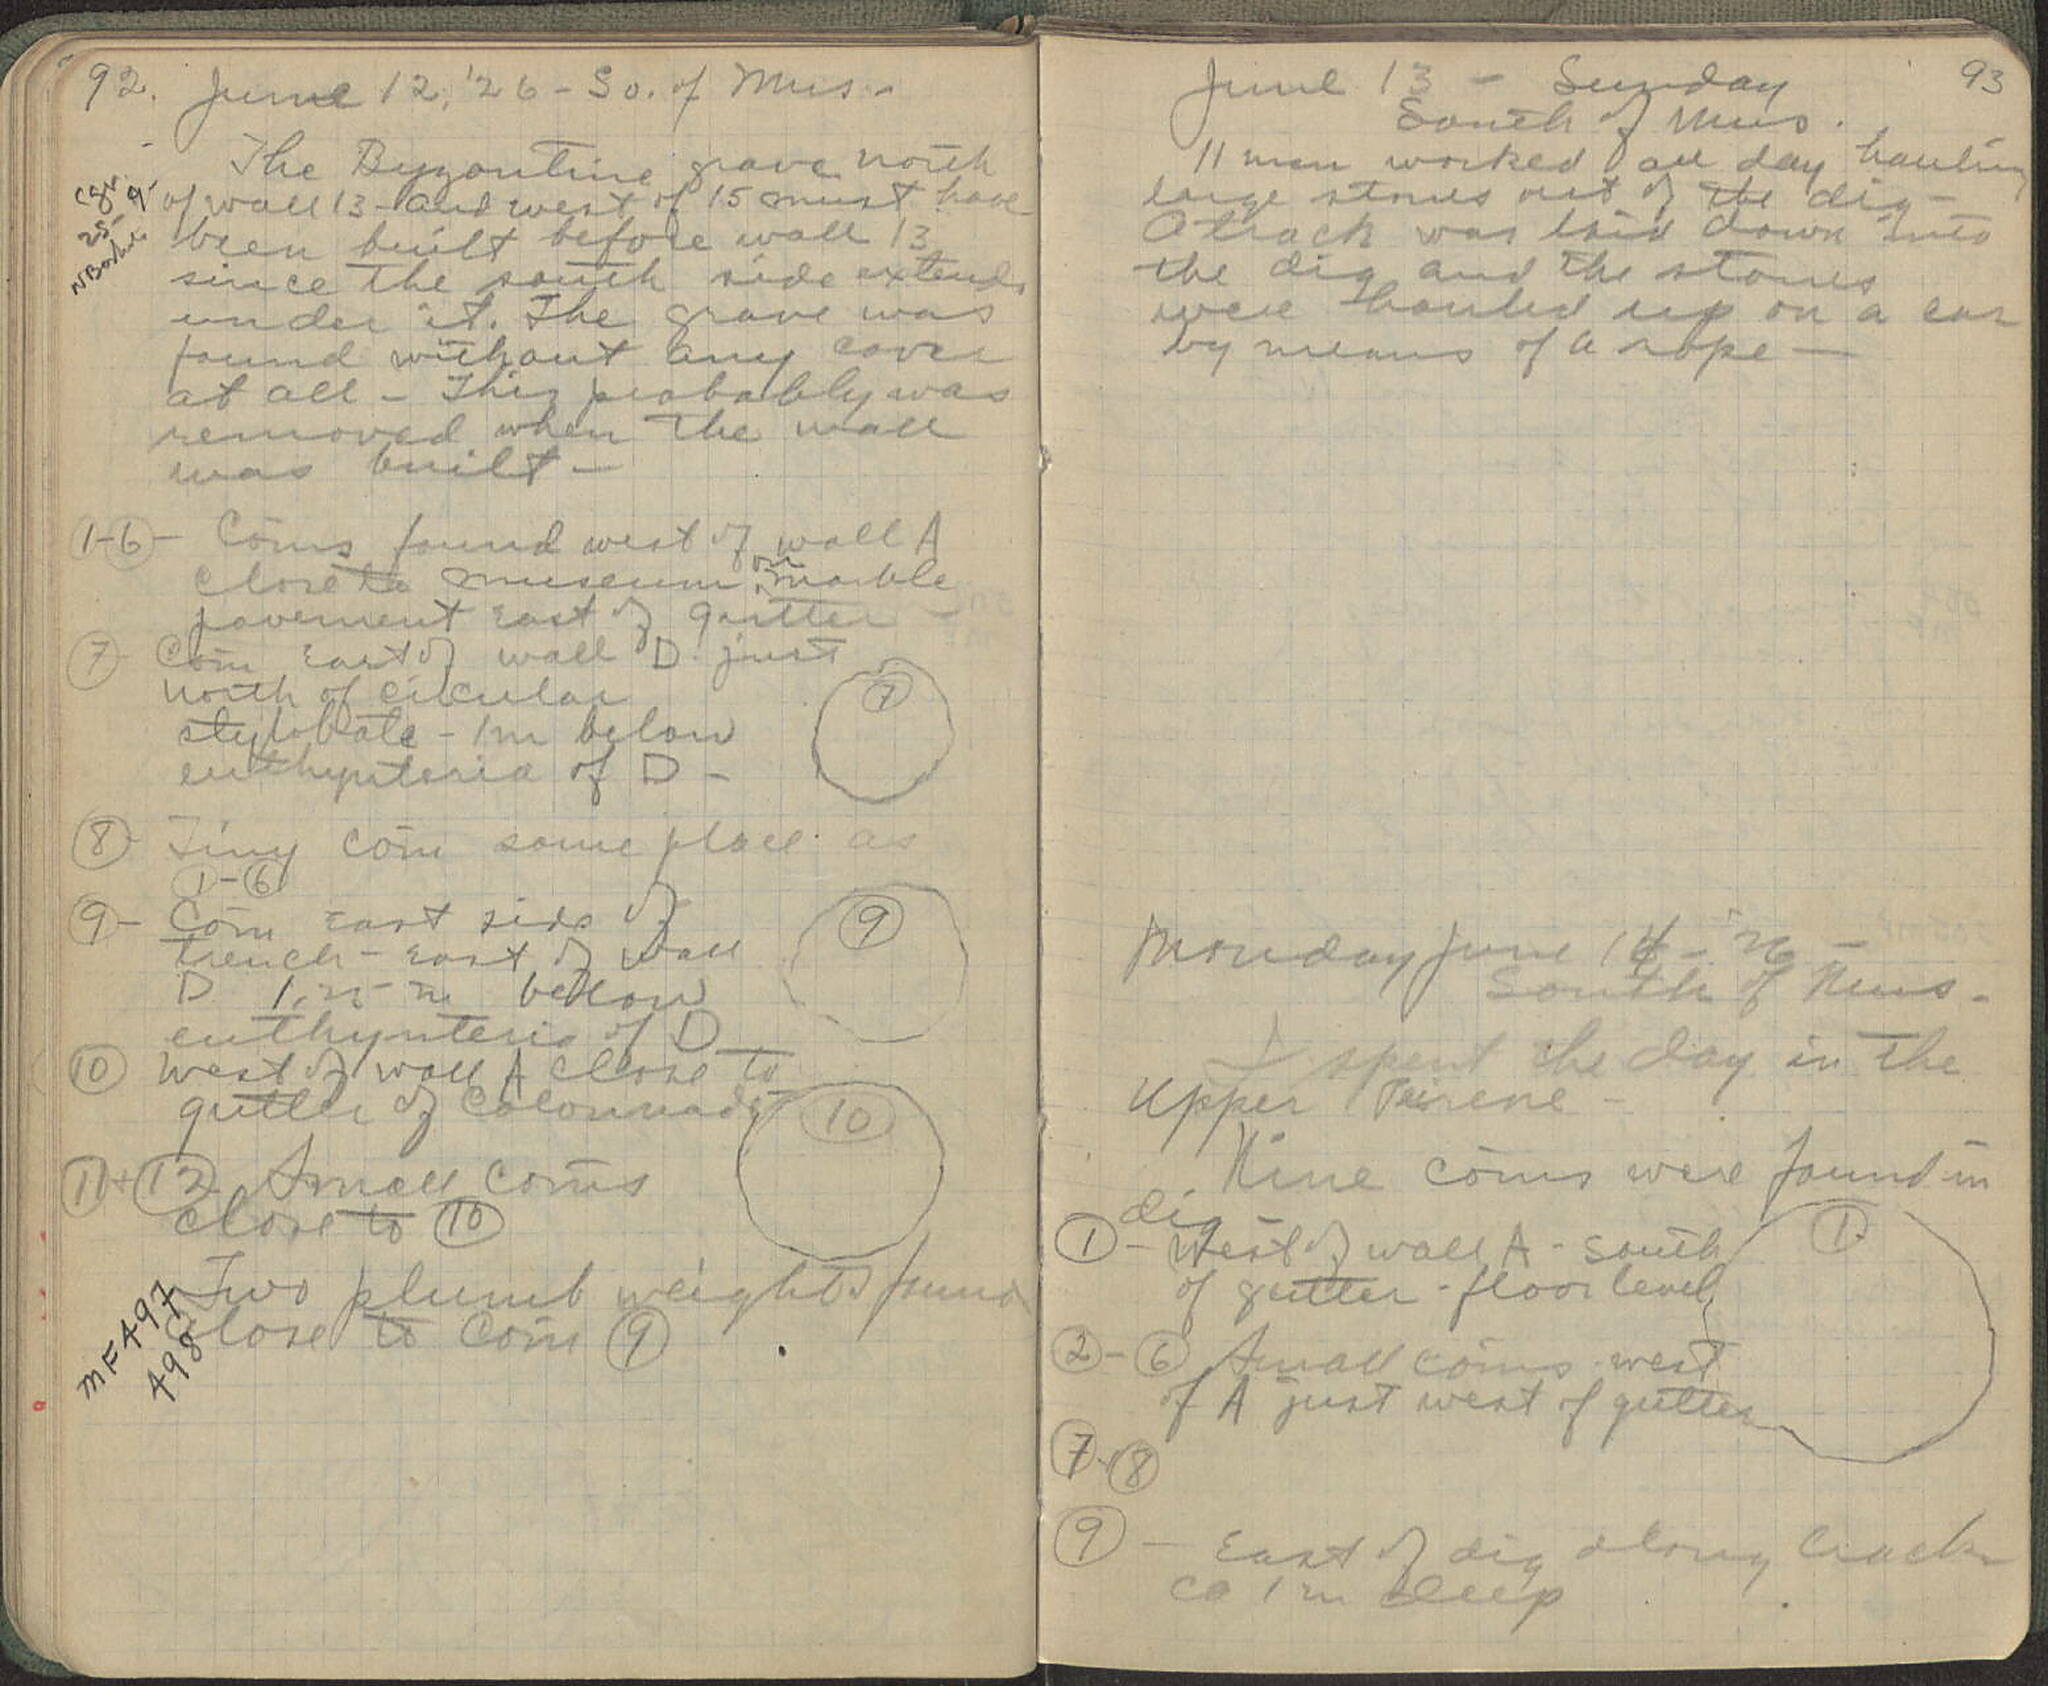 92. June 12, '26 - So. of Mus -
The Byzantine grave north
of wall 13 - and west of 15 must have
been built before wall 13
since the south side extends
under it. The grave was
found without any cover
at all - This probably was
removed when the wall
was built -
1-6 - Coins found west of wall A
close to museum on marble
pavement east of gutter -
7 - Coin east of wall D just
north of circular
stylobate - 1m below
euthynteria of D -
7
8 - Tiny coin same place as
1 - 6
9 - Coin east side of
trench - east of wall
D 1.25 m below
euthynteria of D
9
10 West of wall A close to
gutter of colonnade
10
11 + 12 Small coins
close to 10
Two plumb weights found
close to coin 9
MF 497
498
93
June 13 - Sunday
South of Mus.
11 men worked all day hauling
large stones out of the dig -
A track was laid down into
the dig and the stones
were hauled up on a car
by means of a rope -
Monday June 14 - '26 -
South of Mus -
I spent the day in the
Upper Peirene -
Nine coins were found in
dig -
1 - West of wall A - south
of gutter - floor level
1
2 - 6 Small coins west
of A just west of gutter
7 - 8
9 - East of dig along track
ca 1 m deep